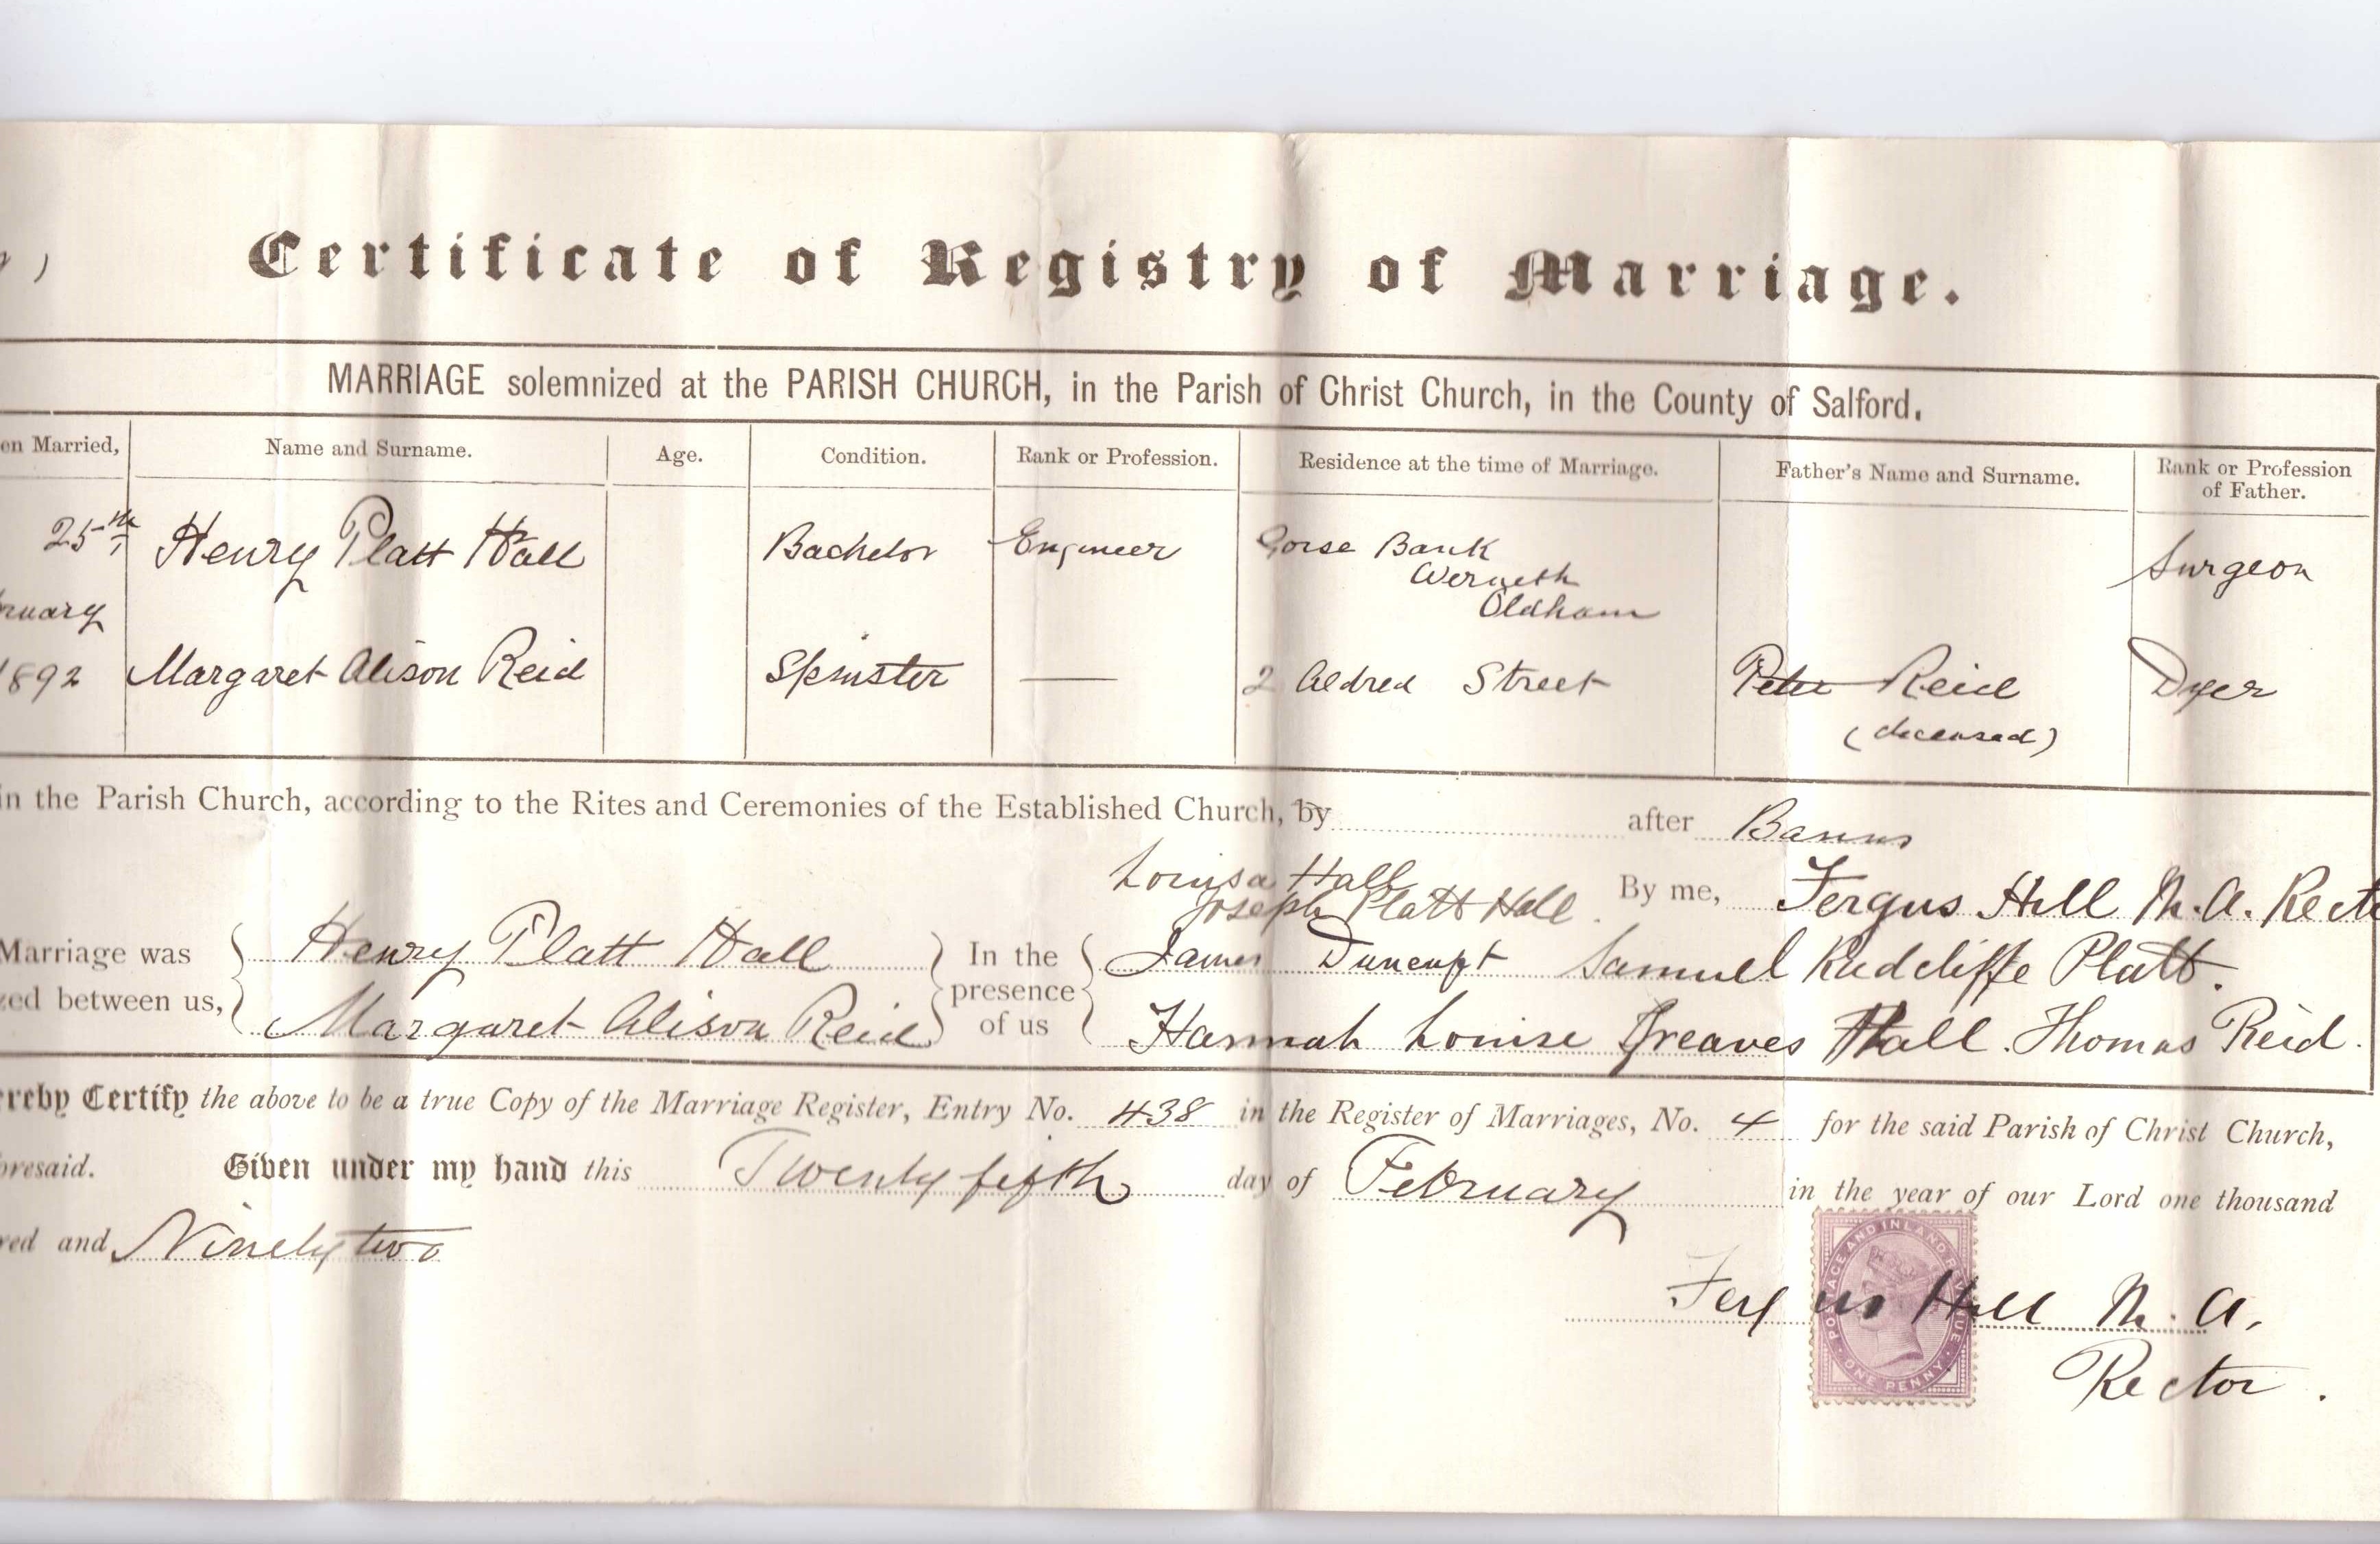 Certificate of Registry of Marriage.
MARRIAGE solemnized at the PARISH CHURCH, in the Parish of Christ Church, in the County of Salford.
en Married, Name and Surname. Age. Condition. Rank or Profession. Residence at the time of Marriage. Father's Name and Surname. Rank or Profession
of Father.
25th Henry Platt Hall Bachelor Engineer Gorse Bank Surgeon
Werneth
ruary Oldham
1892 Margaret Alison Reid Spinster — 2 Aldred Street Peter Reid Dyer
(deceased)
in the Parish Church, according to the Rites and Ceremonies of the Established Church, by after Banns
Louisa Hall
Joseph Platt Hall. By me, Fergus Hill M.A. Recto
Marriage was Henry Platt Hall In the James Duncuft Samuel Radcliffe Platt.
zed between us, Margaret Alison Reid presence of us Hannah Louise Greaves Hall. Thomas Reid.
ereby Certify the above to be a true Copy of the Marriage Register, Entry No. 438 in the Register of Marriages, No. 4 for the said Parish of Christ Church,
oresaid. Given under my hand this Twenty fifth day of February in the year of our Lord one thousand
red and Ninety two
POSTAGE AND INLAND REVENUE
ONE PENNY
Fergus Hill M.A.
Rector.